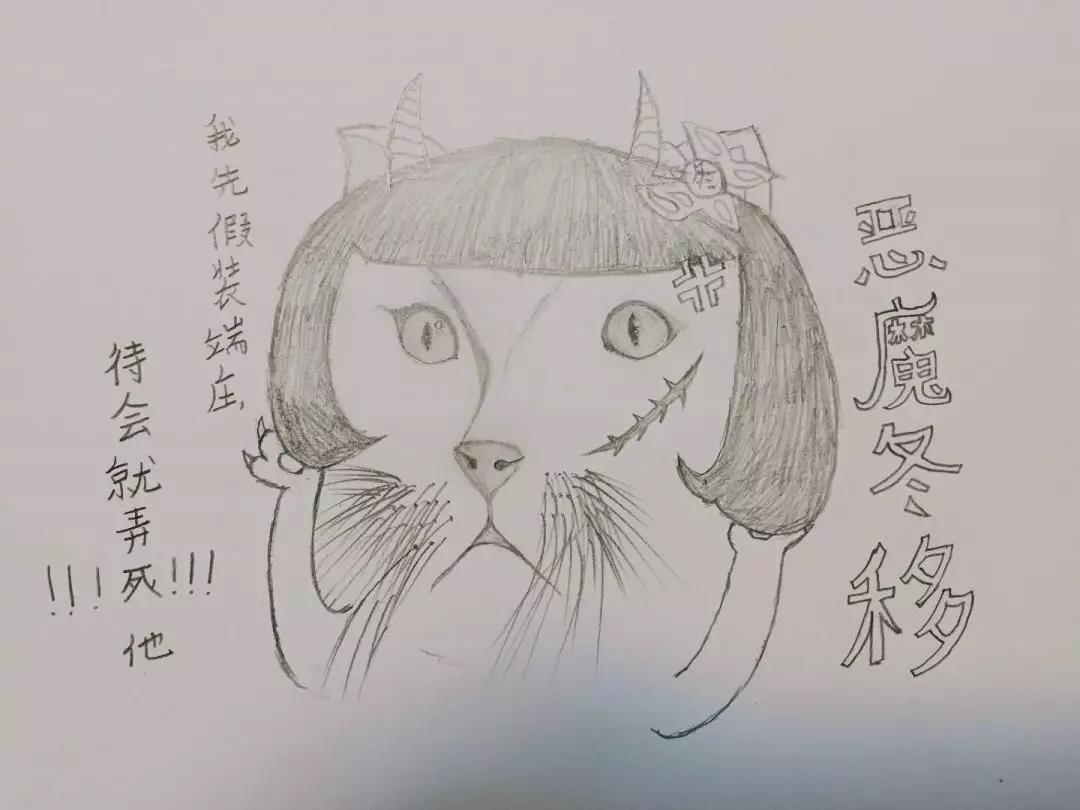 恶魔冬移
我先假装端庄,
待会就弄死他
!!! !!!